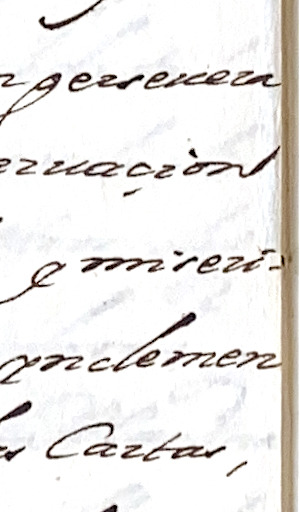 persevera
ervaçion
e miseri=
ynclemen
las Cartas,